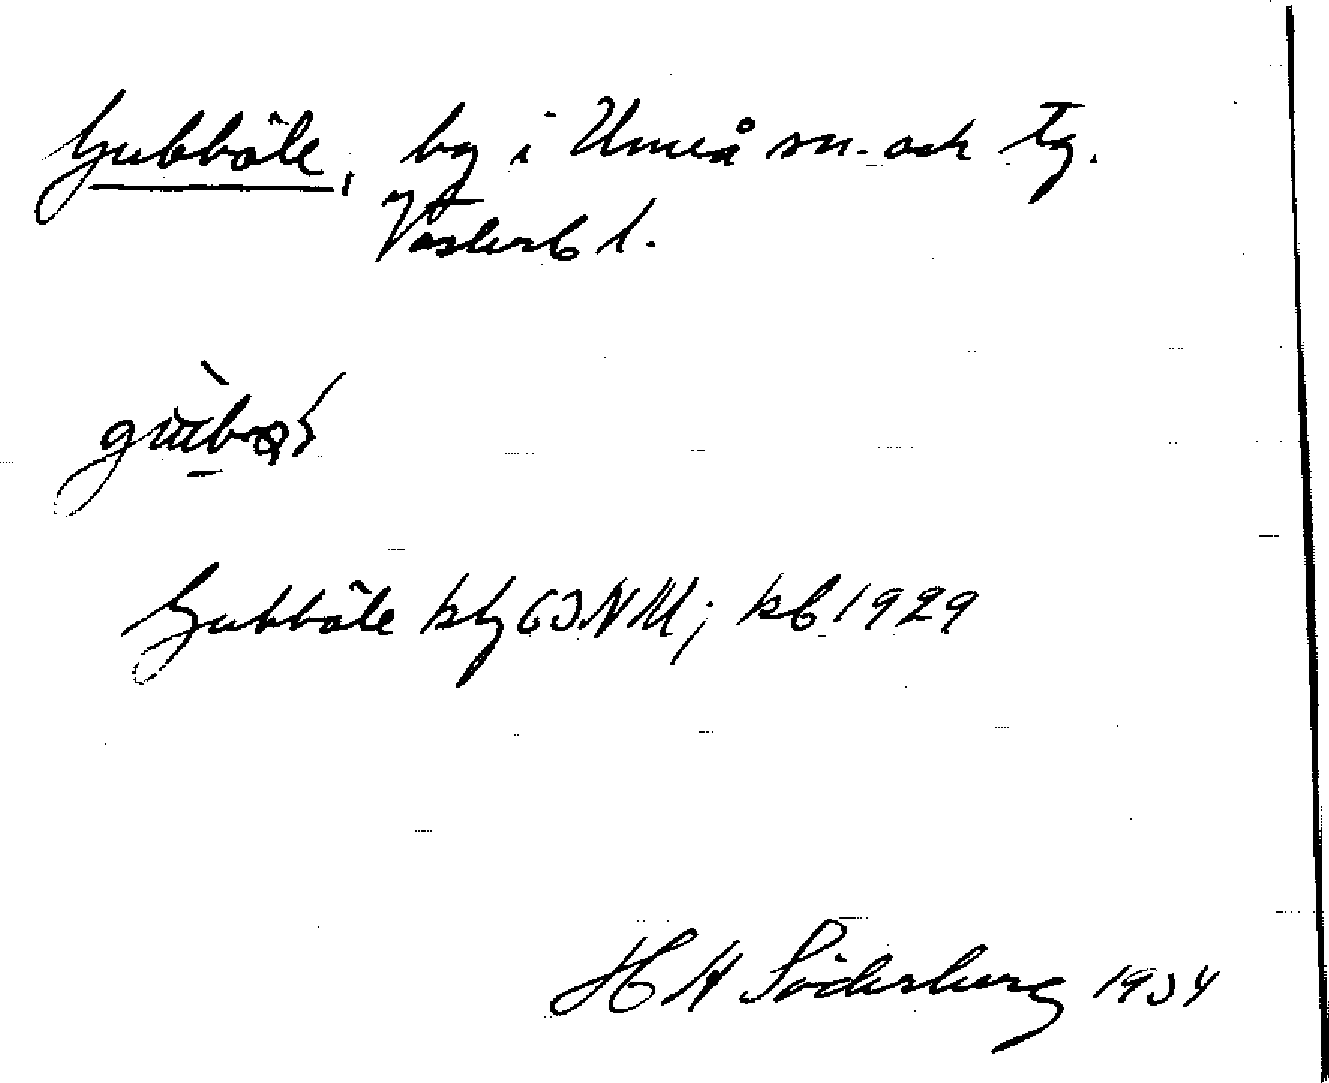 Gubböle, by i Umeå sn. och tg.
Västerb l.
Gubböle kbg 63 NM; kb 1929
H H Söderberg 1934